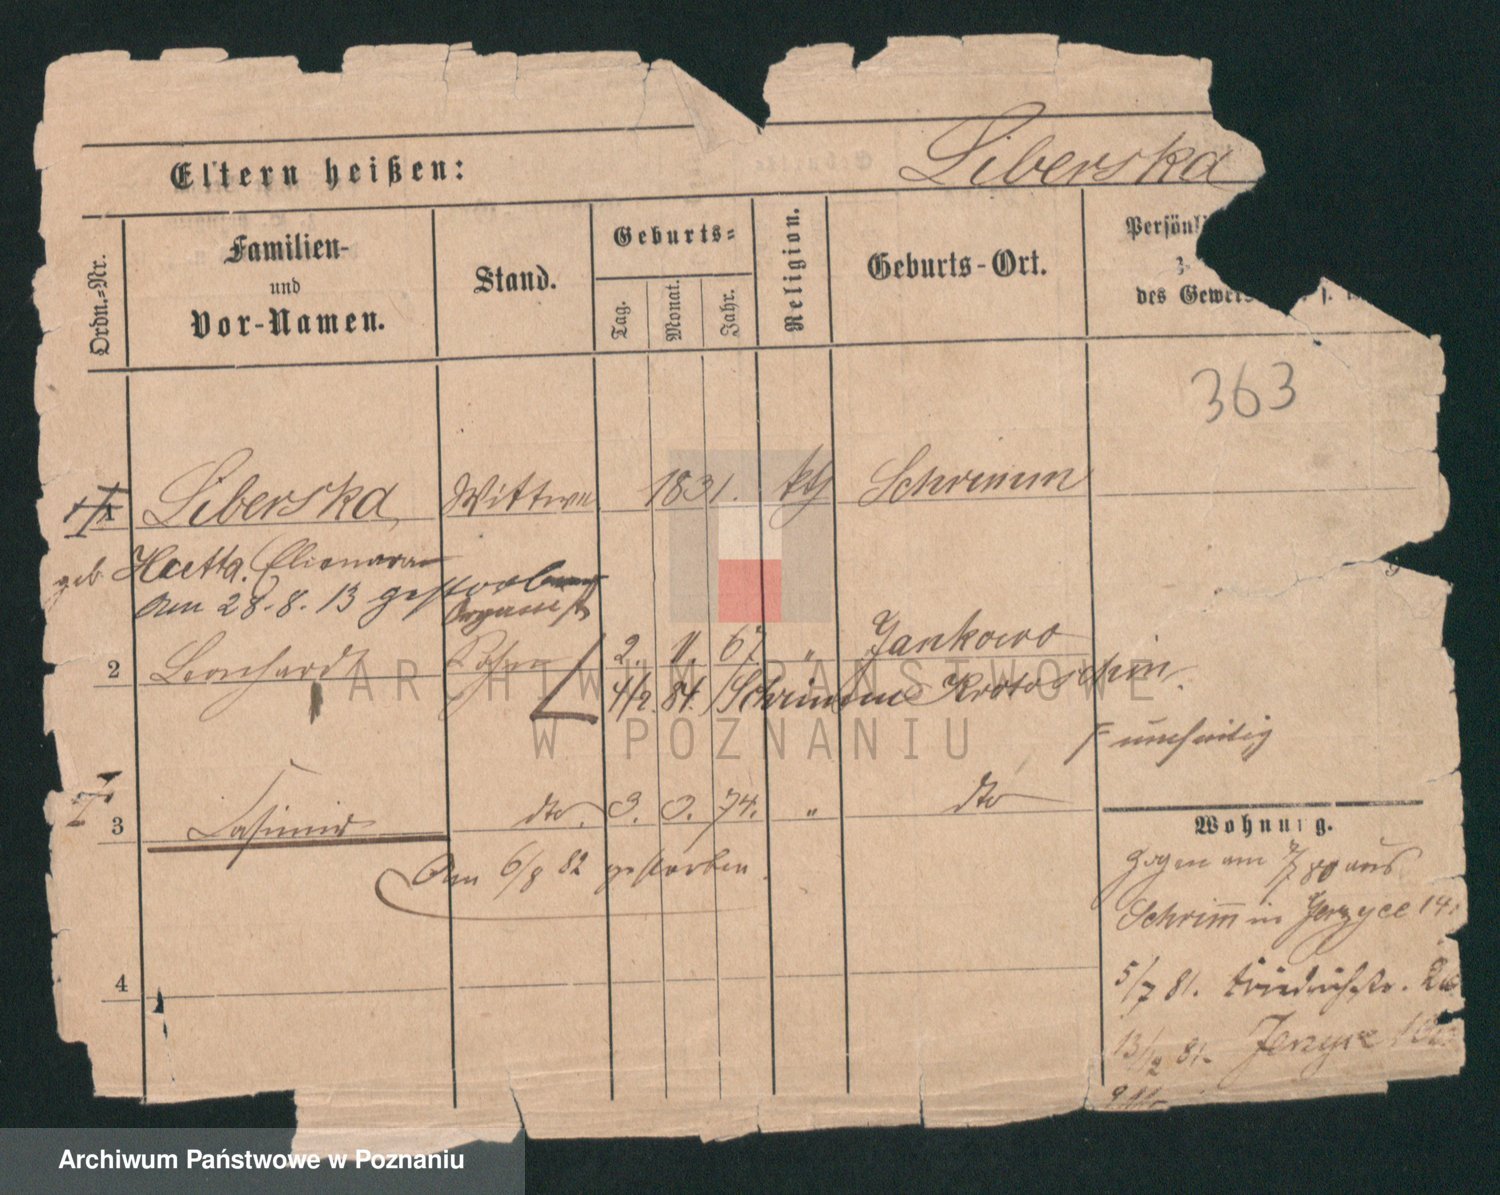 Eltern heißen:
Liberska
Ordn.=Nr.
Familien-
und
Vor-Namen.
Stand.
Geburts=
Tag.
Monat.
Jahr.
Religion.
Geburts-Ort.
Persönli
des Gewer
363
1
Liberska
Wittwe
1831.
kth
Schrimm
geb. Hoetta.
am 28.8.13 gestorben
Organist
2
Leonhardt
Sohn
2. 11. 67 " Jankowo
4/2. 84. Schrimm Krotoschin.
unehelig
3
Casimir
dto. 3. 3. 74. " dto
Am 6/8 82 gestorben.
4
Wohnung.
Zogen am 7/7 80 aus
Schrimm in Jerzyce 14
5/7 81. Friedrichstr. 2
13/12 81. Jerzyce 1
ARCHIWUM PAŃSTWOWE
W POZNANIU
Archiwum Państwowe w Poznaniu